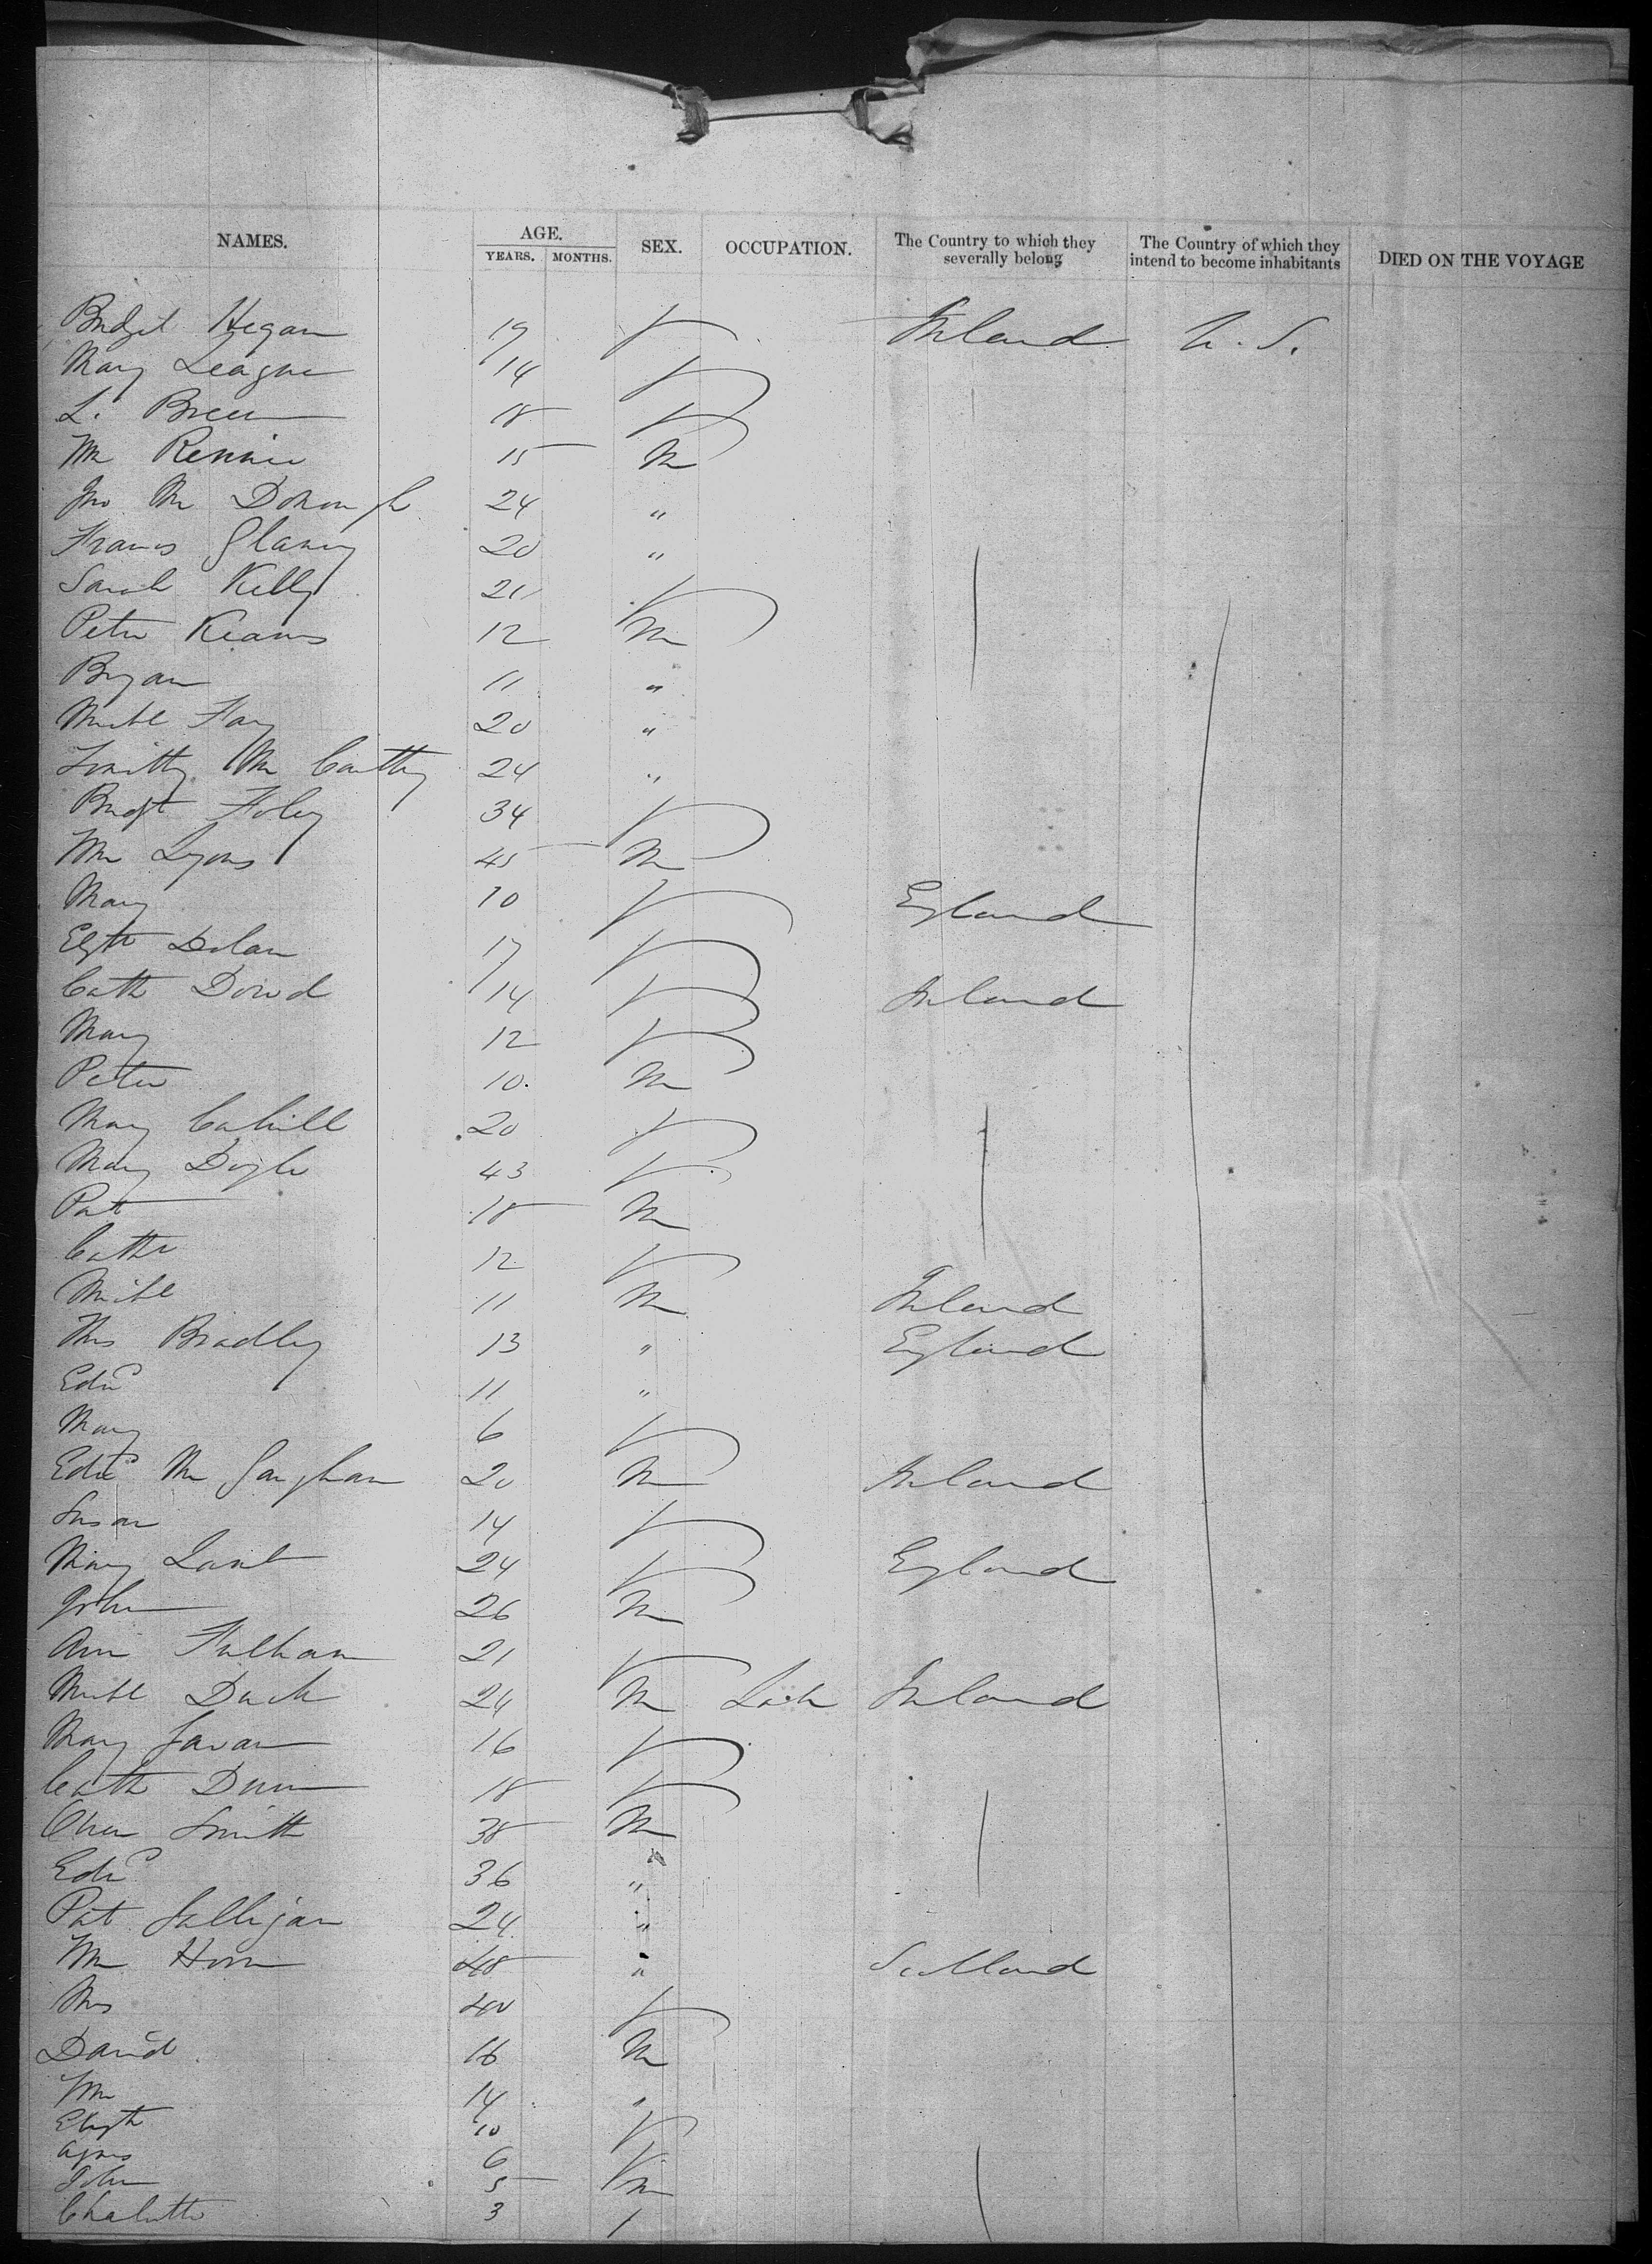 NAMES. AGE. SEX. OCCUPATION. The Country to which they severally belong The Country of which they intend to become inhabitants DIED ON THE VOYAGE
YEARS. MONTHS.
Bridget Hegan 19 Ireland U.S.
Mary League 14
L. Breen 18
Wm Rennie 15 M
Jno Mc Donough 24 "
Francis Glancy 20 "
Sarah Kelly 21
Peter Kearns 12 M
Bryan 11 "
Michl Fay 20 "
Timothy Mc Carthy 24 "
Bridgt Foley 34
Wm Lyons 45 M
Mary 10 England
Elizth Dolan 17
Cath Dowd 14 Ireland
Mary 12
Peter 10 M
Mary Cahill 20
Mary Doyle 43
Pat 18 M
Cathe 12
Michl 11 M Ireland
Ths Bradley 13 " England
Edwd 11 "
Mary 6
Edwd Mc Gaughan 20 M Ireland
Susan 14
Mary 24 England
John 26 M
Ann Fulham 21
Michl 24 M Ireland
Mary Gavan 16
Cath Dunn 18
Owen Smith 38 M
Edwd 36 "
Pat Galligan 24 "
Wm Horn 48 " Scotland
Mrs 40
David 16 M
Wm 14 "
Elizth 10
Agnes 6
John 5 M
Chalotte 3